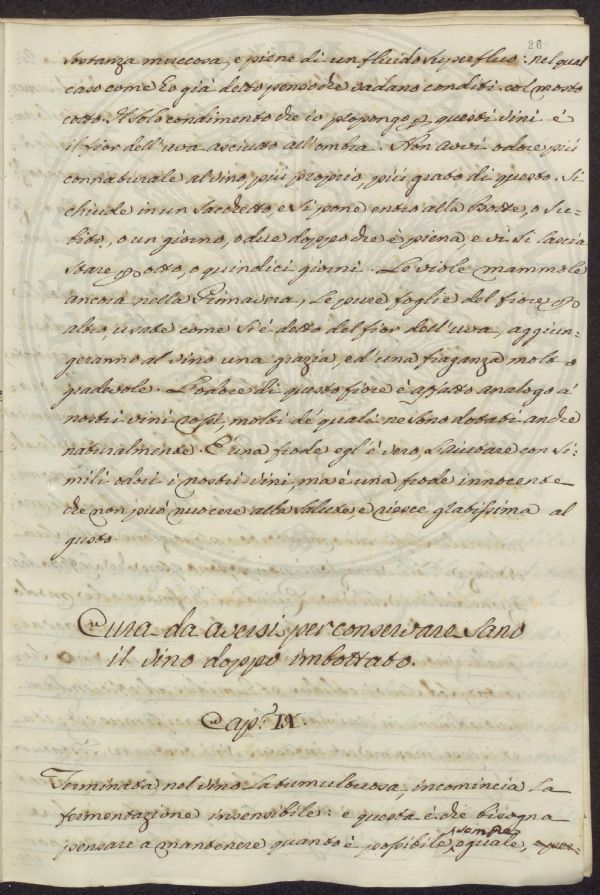 26
sostanza muccosa, e piene di un fluido superfluo: nel qual
caso come Io già detto penso che vadano conditi col mosto
cotto. Il solo condimento che io propongo p questi vini é
il fior dell'uva asciutto all'ombra. Non avvi odore più
connaturale al vino, più proprio, più grato di questo. Si
chiude in un sacchetto, e si pone entro alla Botte, o su-
bito, o un giorno, o due doppo che è piena e vi si lascia
stare p otto, o quindici giorni. Le viole mammole
ancora nella Primavera, le pure foglie del fiore
altro, usate come si é detto del fior dell'uva, aggiun-
geranno al vino una grazia, ed una fraganza molto
gradevole. L'odore di questo fiore è affatto analogo á
nostri vini rossi, molti de' quali ne sono dotati anche
naturalmente. E' una frode egl' è vero, l'aiutare con si-
mili odori i nostri vini, ma è una frode innocente
che non può nuocere alla salute, e riesce gratissima al
gusto.
Cura da aversi per conservare sano
il vino doppo imbottato.
Cap.° IX.
Terminata nel vino la tumultuosa, incomincia la
fermentazione insensibile: e questa è che bisogna
pensare a mantenere quanto è possibile sempre eguale,